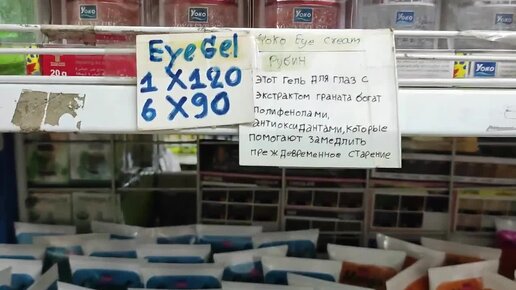 YOKO
YOKO
YOKO
YOKO
20 g
YOKO
Eye Gel
1 X 120
6 X 90
Yoko Eye Cream
Рубин
Этот гель для глаз с
экстрактом граната богат
полифенолами,
антиоксидантами, которые
помогают замедлить
преждовременное старение